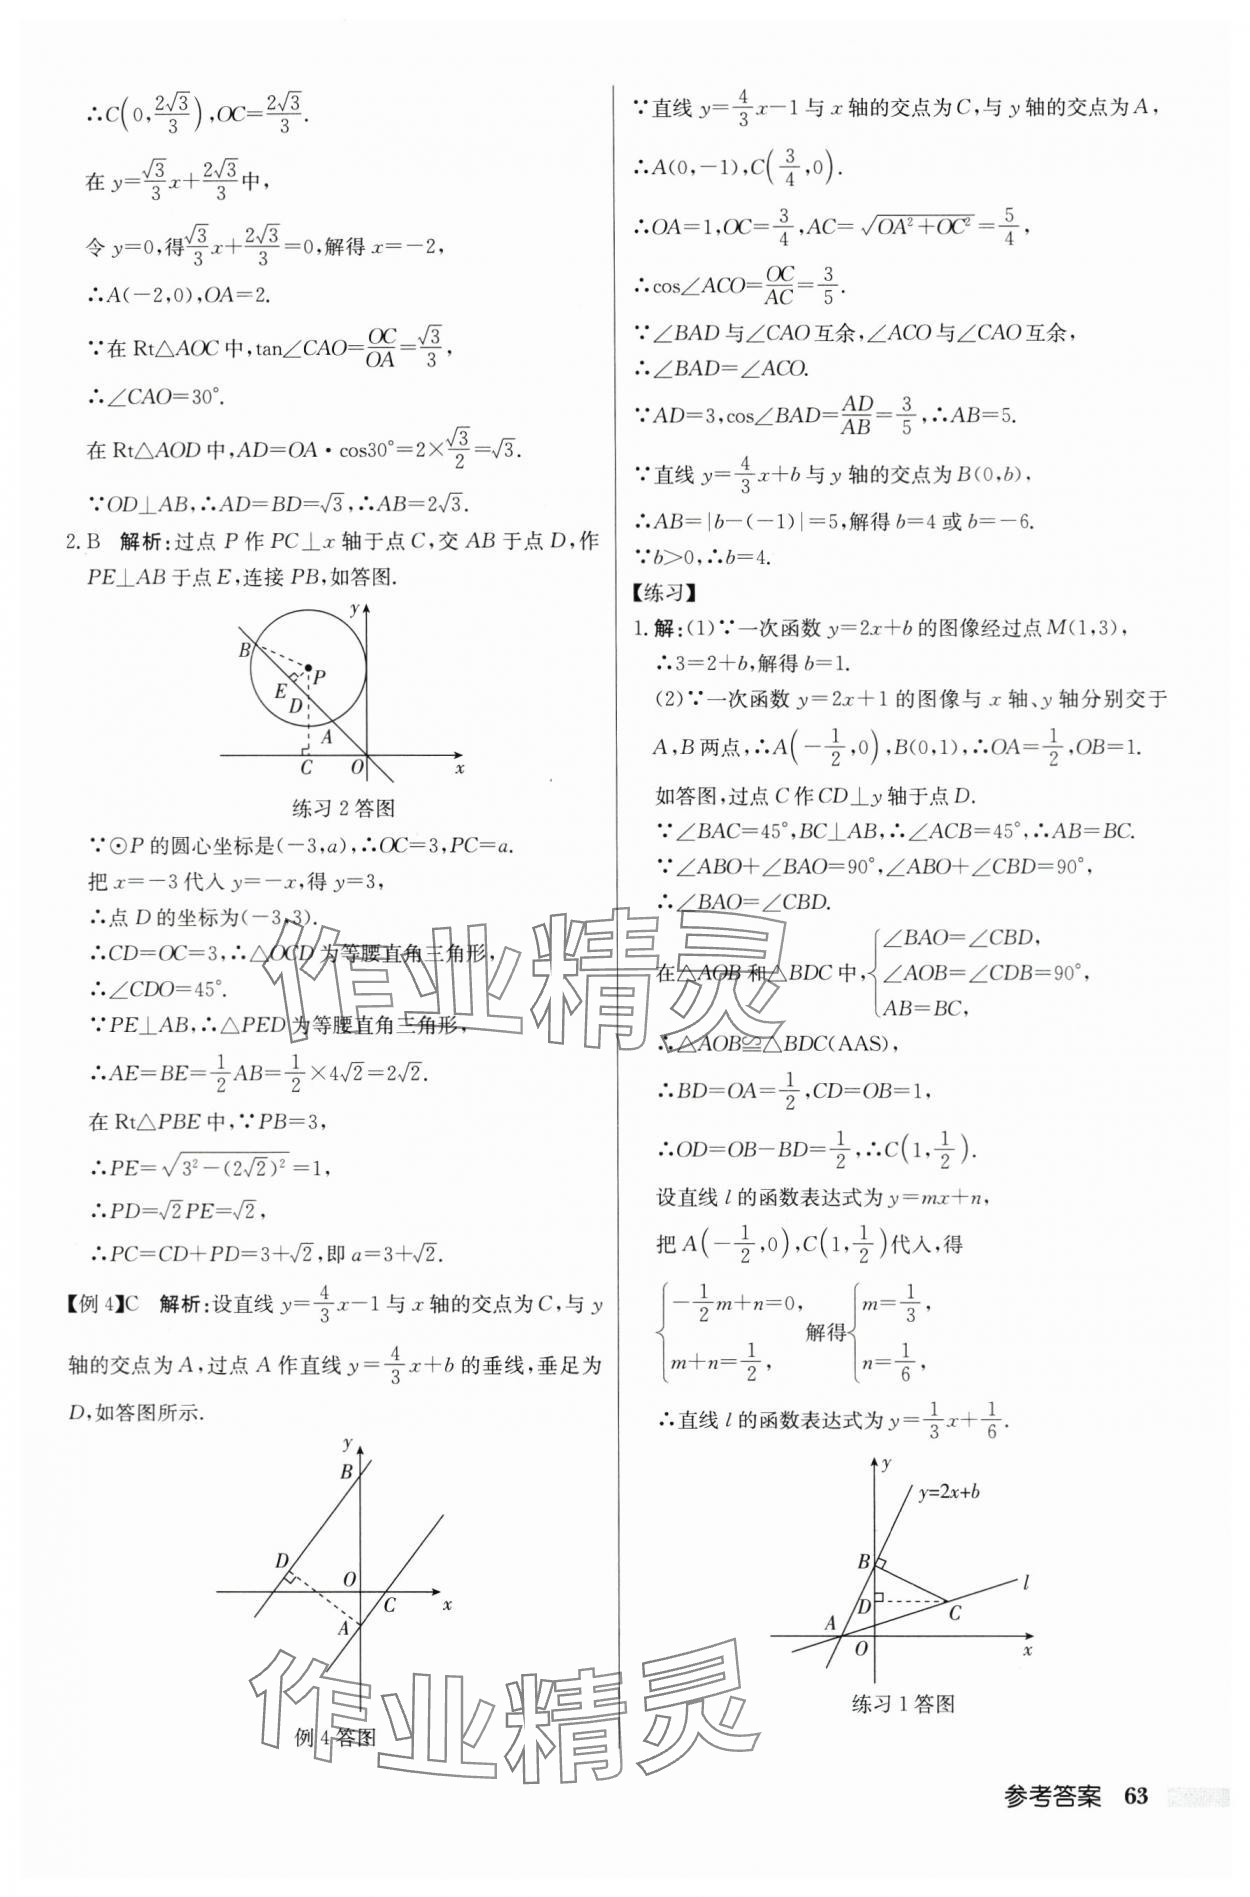 ∴C(0,2√3/3),OC=2√3/3.
在 y=√3/3 x+2√3/3中,
令 y=0,得√3/3 x+2√3/3=0,解得 x=-2,
∴A(-2,0),OA=2.
∵在 Rt△AOC 中,tan∠CAO=OC/OA=√3/3,
∴∠CAO=30°.
在 Rt△AOD 中,AD=OA·cos30°=2×√3/2=√3.
∵OD⊥AB,∴AD=BD=√3,∴AB=2√3.
2.B 解析:过点 P 作 PC⊥x 轴于点 C,交 AB 于点 D,作
PE⊥AB 于点 E,连接 PB,如答图.
y
B
P
E
D
A
C
O
x
练习 2 答图
∵⊙P 的圆心坐标是(-3,a),∴OC=3,PC=a.
把 x=-3 代入 y=-x,得 y=3,
∴点 D 的坐标为(-3,3).
∴CD=OC=3,∴△OCD 为等腰直角三角形,
∴∠CDO=45°.
∵PE⊥AB,∴△PED 为等腰直角三角形,
∴AE=BE=1/2 AB=1/2×4√2=2√2.
在 Rt△PBE 中,∵PB=3,
∴PE=√(3²-(2√2)²)=1,
∴PD=√2PE=√2,
∴PC=CD+PD=3+√2,即 a=3+√2.
【例 4】C 解析:设直线 y=4/3 x-1 与 x 轴的交点为 C,与 y
轴的交点为 A,过点 A 作直线 y=4/3 x+b 的垂线,垂足为
D,如答图所示.
y
B
D
O
C
x
A
例 4 答图
∵直线 y=4/3 x-1 与 x 轴的交点为 C,与 y 轴的交点为 A,
∴A(0,-1),C(3/4,0).
∴OA=1,OC=3/4,AC=√(OA²+OC²)=5/4,
∴cos∠ACO=OC/AC=3/5.
∵∠BAD 与∠CAO 互余,∠ACO 与∠CAO 互余,
∴∠BAD=∠ACO.
∵AD=3,cos∠BAD=AD/AB=3/5,∴AB=5.
∵直线 y=4/3 x+b 与 y 轴的交点为 B(0,b),
∴AB=|b-(-1)|=5,解得 b=4 或 b=-6.
∵b>0,∴b=4.
【练习】
1.解:(1)∵一次函数 y=2x+b 的图像经过点 M(1,3),
∴3=2+b,解得 b=1.
(2)∵一次函数 y=2x+1 的图像与 x 轴、y 轴分别交于
A,B 两点,∴A(-1/2,0),B(0,1),∴OA=1/2,OB=1.
如答图,过点 C 作 CD⊥y 轴于点 D.
∵∠BAC=45°,BC⊥AB,∴∠ACB=45°,∴AB=BC.
∵∠ABO+∠BAO=90°,∠ABO+∠CBD=90°,
∴∠BAO=∠CBD.
在△AOB 和△BDC 中,{∠BAO=∠CBD,
∠AOB=∠CDB=90°,
AB=BC,
∴△AOB≌△BDC(AAS),
∴BD=OA=1/2,CD=OB=1,
∴OD=OB-BD=1/2,∴C(1,1/2).
设直线 l 的函数表达式为 y=mx+n,
把 A(-1/2,0),C(1,1/2)代入,得
{-1/2 m+n=0, m+n=1/2, 解得{m=1/3, n=1/6,
∴直线 l 的函数表达式为 y=1/3 x+1/6.
y
y=2x+b
B
l
D
C
A
O
x
练习 1 答图
作业精灵
作业精灵
参考答案 63